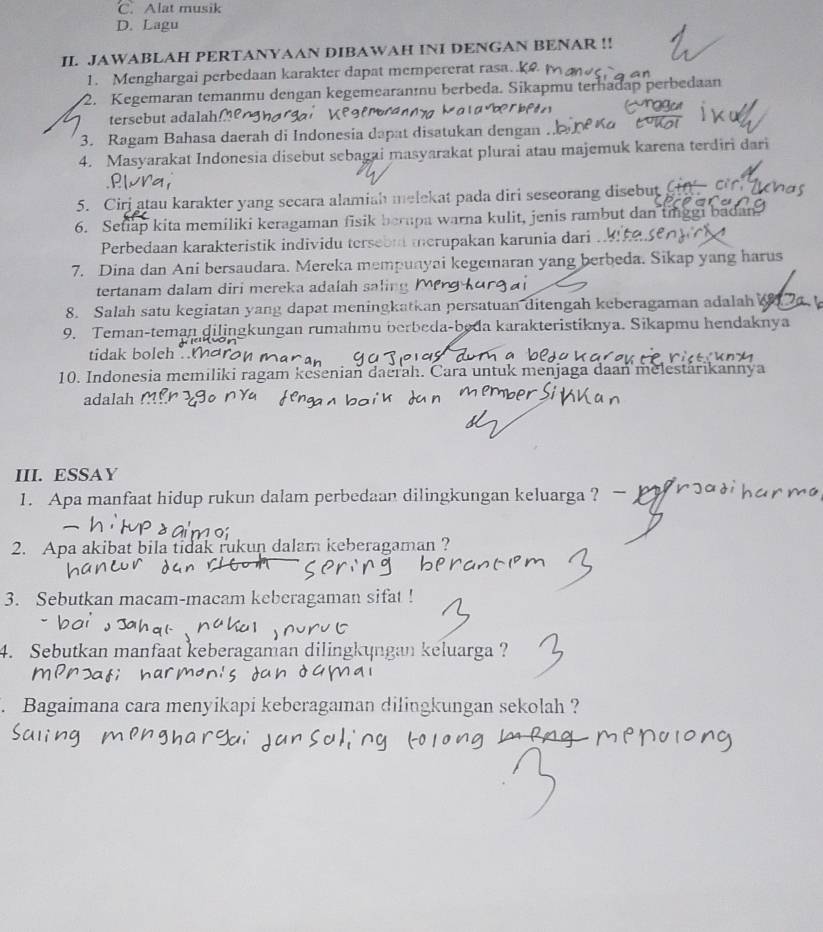 C. Alat musik
D. Lagu
II. JAWABLAH PERTANYAAN DIBAWAH INI DENGAN BENAR !!
1. Menghargai perbedaan karakter dapat mempererat rasa.. ke manusiaan
2. Kegemaran temanmu dengan kegemearanmu berbeda. Sikapmu terhadap perbedaan
tersebut adalah menghargai kegemorannya
3. Ragam Bahasa daerah di Indonesia dapat disatukan dengan .. bineka tunggal ika
4. Masyarakat Indonesia disebut sebagai masyarakat plurai atau majemuk karena terdiri dari
.plurai
5. Ciri atau karakter yang secara alamiah melekat pada diri seseorang disebut ciri khas
seseorang
6. Setiap kita memiliki keragaman fisik berupa warna kulit, jenis rambut dan tinggi badan.
Perbedaan karakteristik individu tersebut merupakan karunia dari .. kita sendiri
7. Dina dan Ani bersaudara. Mereka mempunyai kegemaran yang berbeda. Sikap yang harus
tertanam dalam diri mereka adalah saling menghargai
8. Salah satu kegiatan yang dapat meningkatkan persatuan ditengah keberagaman adalah
9. Teman-teman dilingkungan rumahmu berbeda-beda karakteristiknya. Sikapmu hendaknya
tidak boleh ..
10. Indonesia memiliki ragam kesenian daerah. Cara untuk menjaga daan melestarikannya
adalah dengan baik dan membersikkan
III. ESSAY
1. Apa manfaat hidup rukun dalam perbedaan dilingkungan keluarga ? -
2. Apa akibat bila tidak rukun dalam keberagaman ?
hancur dan sering berantem 3
3. Sebutkan macam-macam keberagaman sifat !
- bai, jahat, nakal, nurut 3
4. Sebutkan manfaat keberagaman dilingkungan keluarga ? 3
menjadi harmonis dan damai
. Bagaimana cara menyikapi keberagaman dilingkungan sekolah ?
saling menghargai dan saling tolong menolong
3